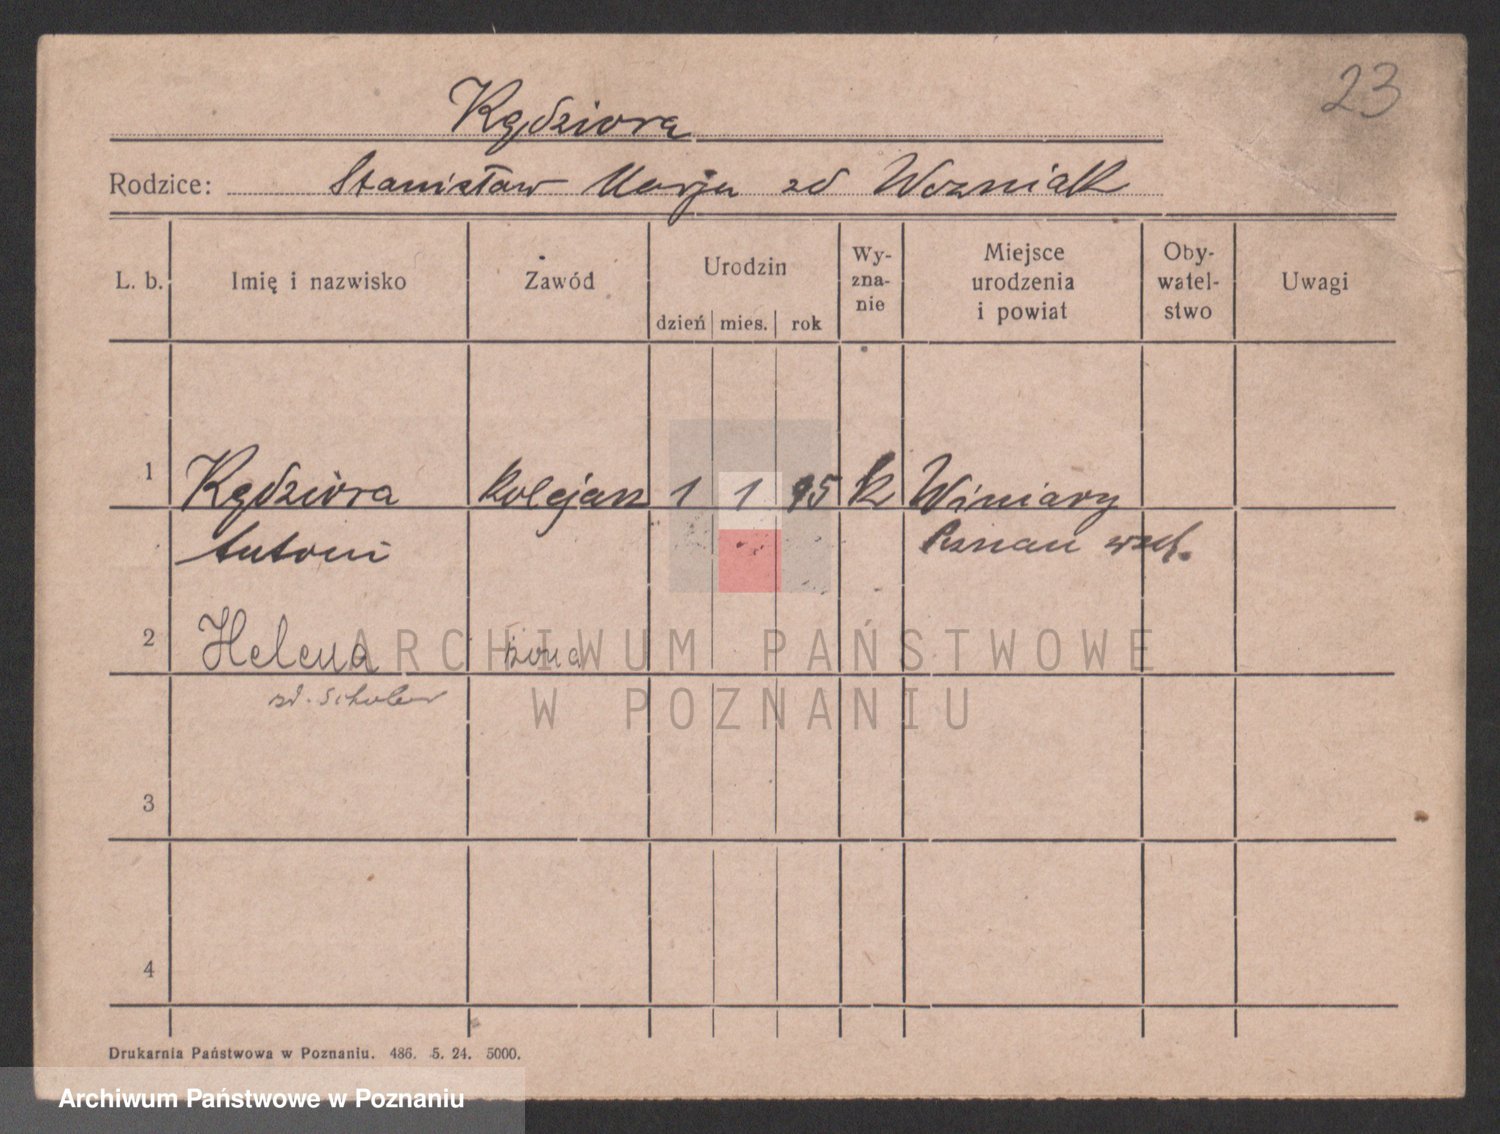 23
Kędziora
Rodzice: Stanisław Marja zd Wozniak
L. b.
Imię i nazwisko
Zawód
Urodzin
dzień mies. rok
Wy-
zna-
nie
Miejsce
urodzenia
i powiat
Oby-
watel-
stwo
Uwagi
1 Kędziora kolejarz 1 1 95 k Winiary
Antoni Poznań wsch.
2 Helena żona
zd.
3
4
ARCHIWUM PAŃSTWOWE
W POZNANIU
Drukarnia Państwowa w Poznaniu. 486. 5. 24. 5000.
Archiwum Państwowe w Poznaniu